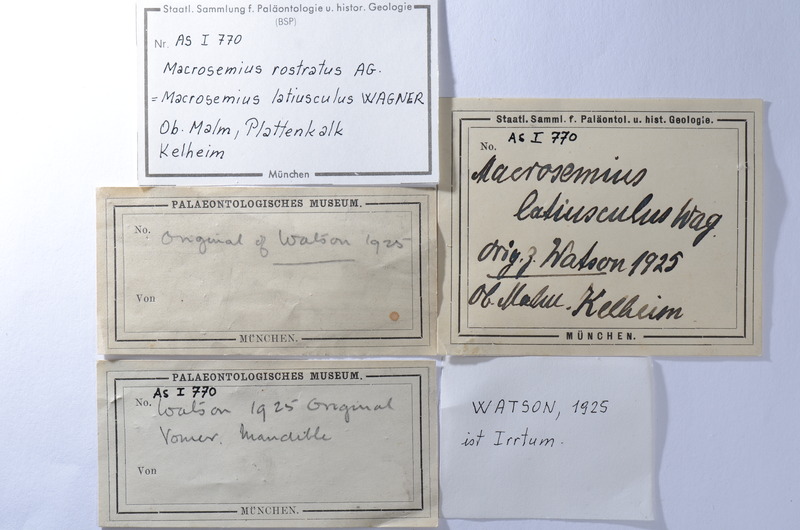 Staatl. Sammlung f. Paläontologie u. histor. Geologie
(BSP)
Nr. AS I 770
Macrosemius rostratus AG.
= Macrosemius latiusculus WAGNER
Ob. Malm, Plattenkalk
Kelheim
München
PALAEONTOLOGISCHES MUSEUM.
No. Original of Watson 1925
Von
MÜNCHEN.
PALAEONTOLOGISCHES MUSEUM.
AS I 770
No. Watson 1925 Original
Vomer. Mandible
Von
MÜNCHEN.
Staatl. Samml. f. Paläontol. u. hist. Geologie.
No. AS I 770
Macrosemius
latiusculus Wag.
Orig. z. Watson 1925
Ob. Malm. Kelheim
MÜNCHEN.
WATSON, 1925
ist Irrtum.